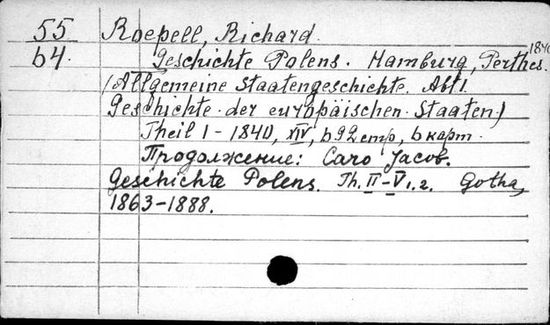 55 Roepell, Richard.
64. Geschichte Polens. Hamburg, Perthes. 1840
(Allgemeine Staatengeschichte. Abt 1.
Geschichte der europäischen Staaten)
Theil 1 - 1840, XIV, 692 стр, 6 карт.
Продолжение: Caro Jacob.
Geschichte Polens. Th. II-V 1.2. Gotha,
1863-1888.